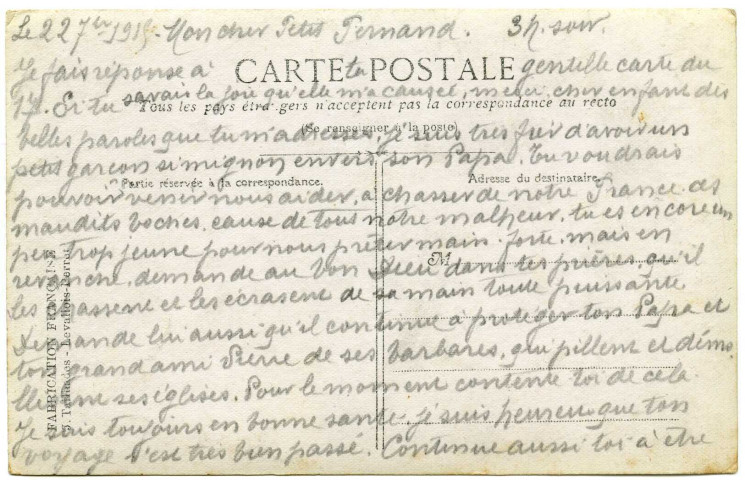 Le 22 7bre 1915. Mon cher Petit Fernand. 3h. soir.
Je fais réponse à ta gentille carte du
CARTE POSTALE
17. Si tu savais la joie qu'elle m'a causé, merci, cher enfant des
Tous les pays étrangers n'acceptent pas la correspondance au recto
(Se renseigner à la poste)
belles paroles que tu m'adresses, je suis très fier d'avoir un
petit garçon si mignon envers son Papa. Tu voudrais
Partie réservée à la correspondance.
Adresse du destinataire.
pouvoir venir nous aider, à chasser de notre France ces
maudits boches, cause de tout notre malheur, tu es encore un
peu trop jeune pour nous prêter main-forte, mais en
M
revanche, demande au bon Dieu dans tes prières, qu'il
les et les écrasent de sa main toute puissante.
Demande lui aussi qu'il continue à protéger ton Papa et
ton grand ami Pierre de ses barbares, qui pillent et démo-
llissent ses églises. Pour le moment contente toi de cela.
Je suis toujours en bonne santé, je suis heureux que ton
voyage s'est très bien passé. Continue aussi toi à être
FABRICATION FRANÇAISE
- Levallois-Perret